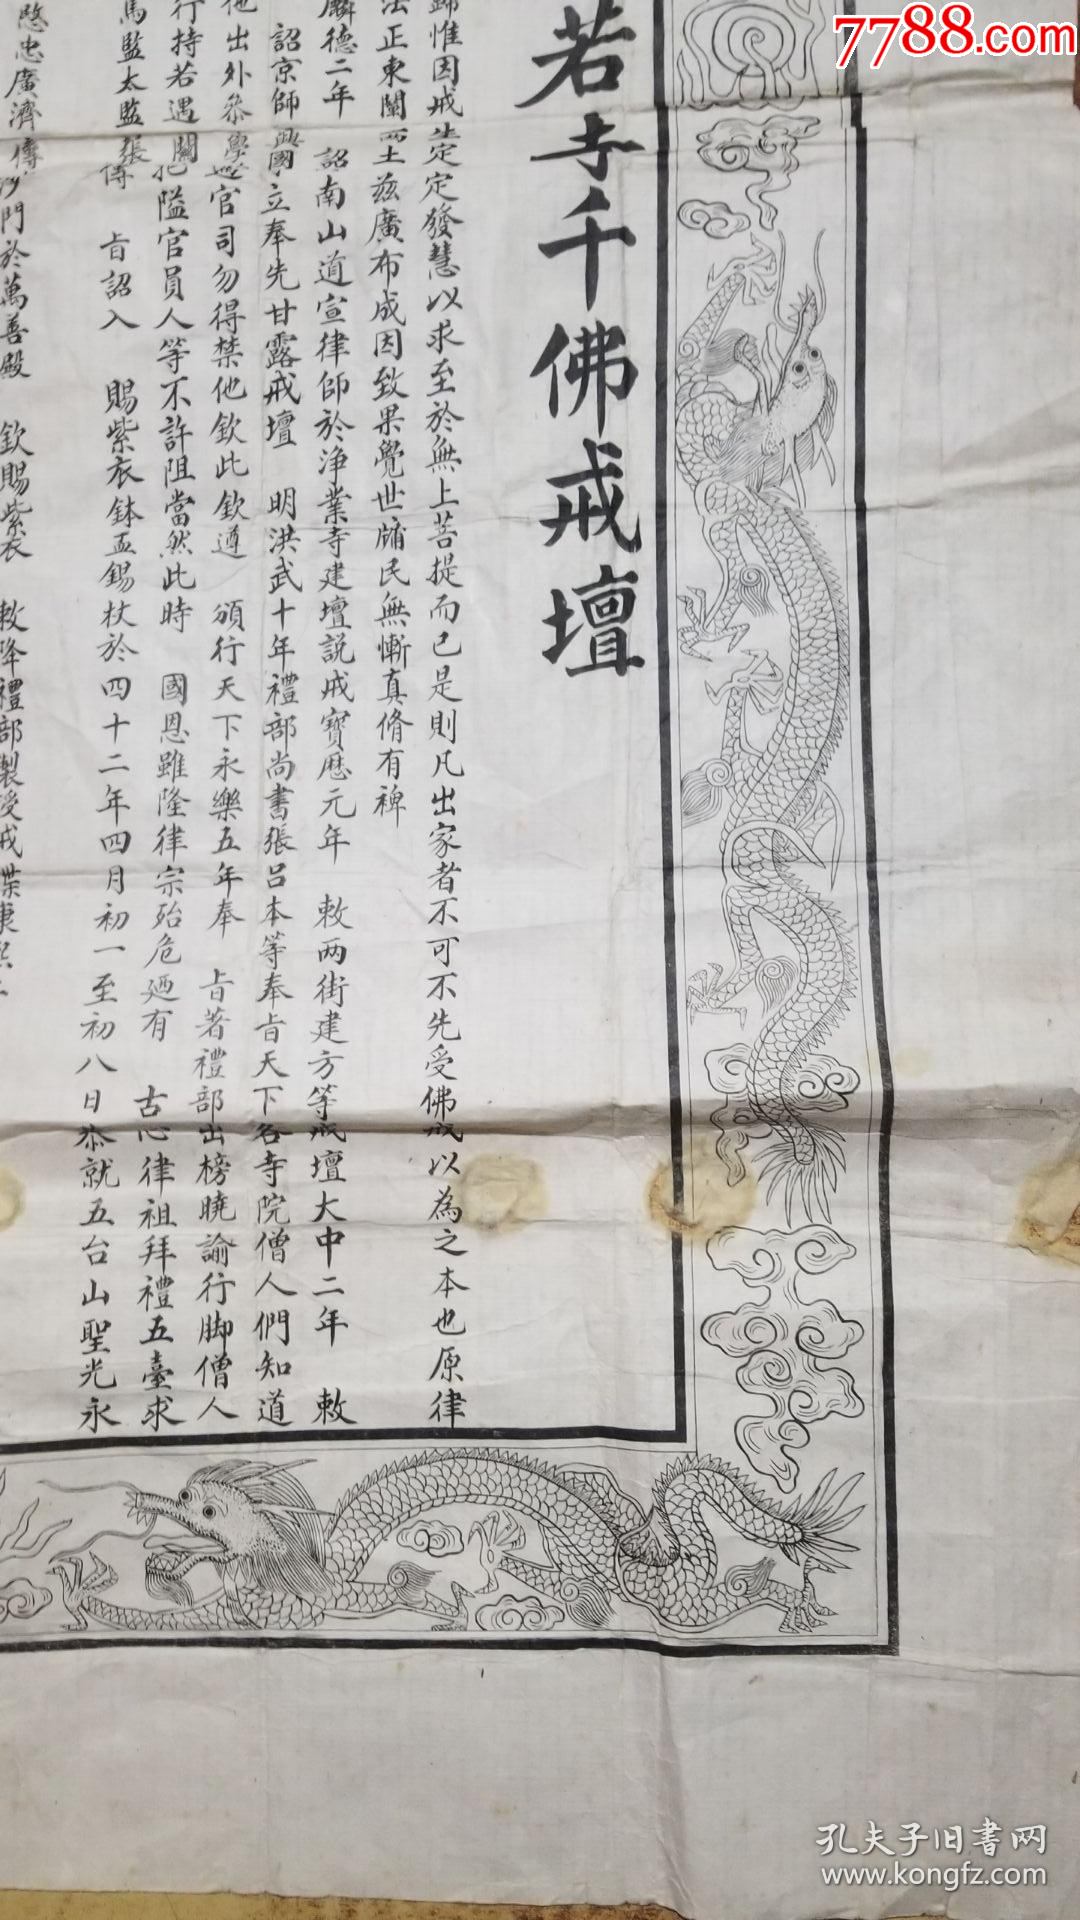 7788.com
若寺千佛戒壇
歸惟因戒生定定發慧以求至於無上菩提而已是則凡出家者不可不先受佛戒以為之本也原律
法正東闡聖王茲廣布成因致果覺世牖民無慚真脩有裨
麟德二年 詔南山道宣律師於淨業寺建壇説戒寶曆元年 敕兩街建方等戒壇大中二年 敕
詔京師興國立奉先甘露戒壇 明洪武十年禮部尚書張呂本等奉旨天下各寺院僧人們知道
他出外叅學官司勿得禁他欽此欽遵 頒行天下永樂五年奉 旨著禮部出榜曉諭行脚僧人
行持若遇關把隘官員人等不許阻當然此時 國恩雖隆律宗殆危廼有 古心律祖拜禮五臺求
馬監太監張 傳 旨詔入 賜紫衣鉢盂錫杖於四十二年四月初一至初八日恭就五台山聖光永
愍忠廣濟傳 沙門於萬善殿 欽賜紫衣 敕降禮部製受戒牒康熙
孔夫子旧书网
www.kongfz.com